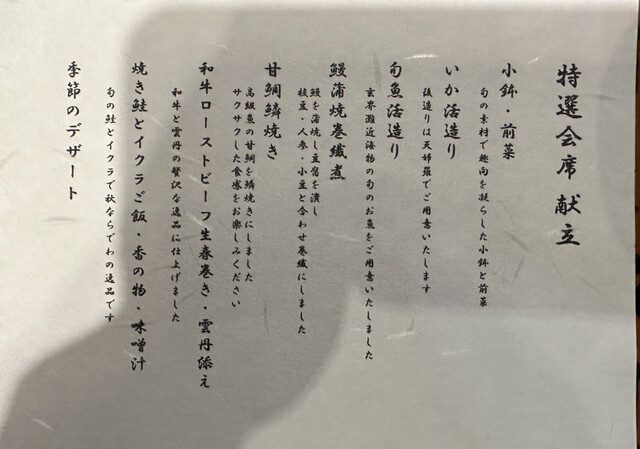 特選会席献立
小鉢・前菜
旬の素材で趣向を凝らした小鉢と前菜
いか活造り
後造りは天婦羅でご用意いたします
旬魚活造り
玄界灘近海物の旬のお魚をご用意いたしました
鰻蒲焼巻繊煮
鰻を蒲焼し豆腐を潰し
枝豆・人参・小豆と合わせ巻繊にしました
甘鯛鱗焼き
高級魚の甘鯛を鱗焼きにしました
サクサクした食感をお楽しみください
和牛ローストビーフ生春巻き・雲丹添え
和牛と雲丹の贅沢な逸品に仕上げました
焼き鮭とイクラご飯・香の物・味噌汁
旬の鮭とイクラで秋ならでわの逸品です
季節のデザート